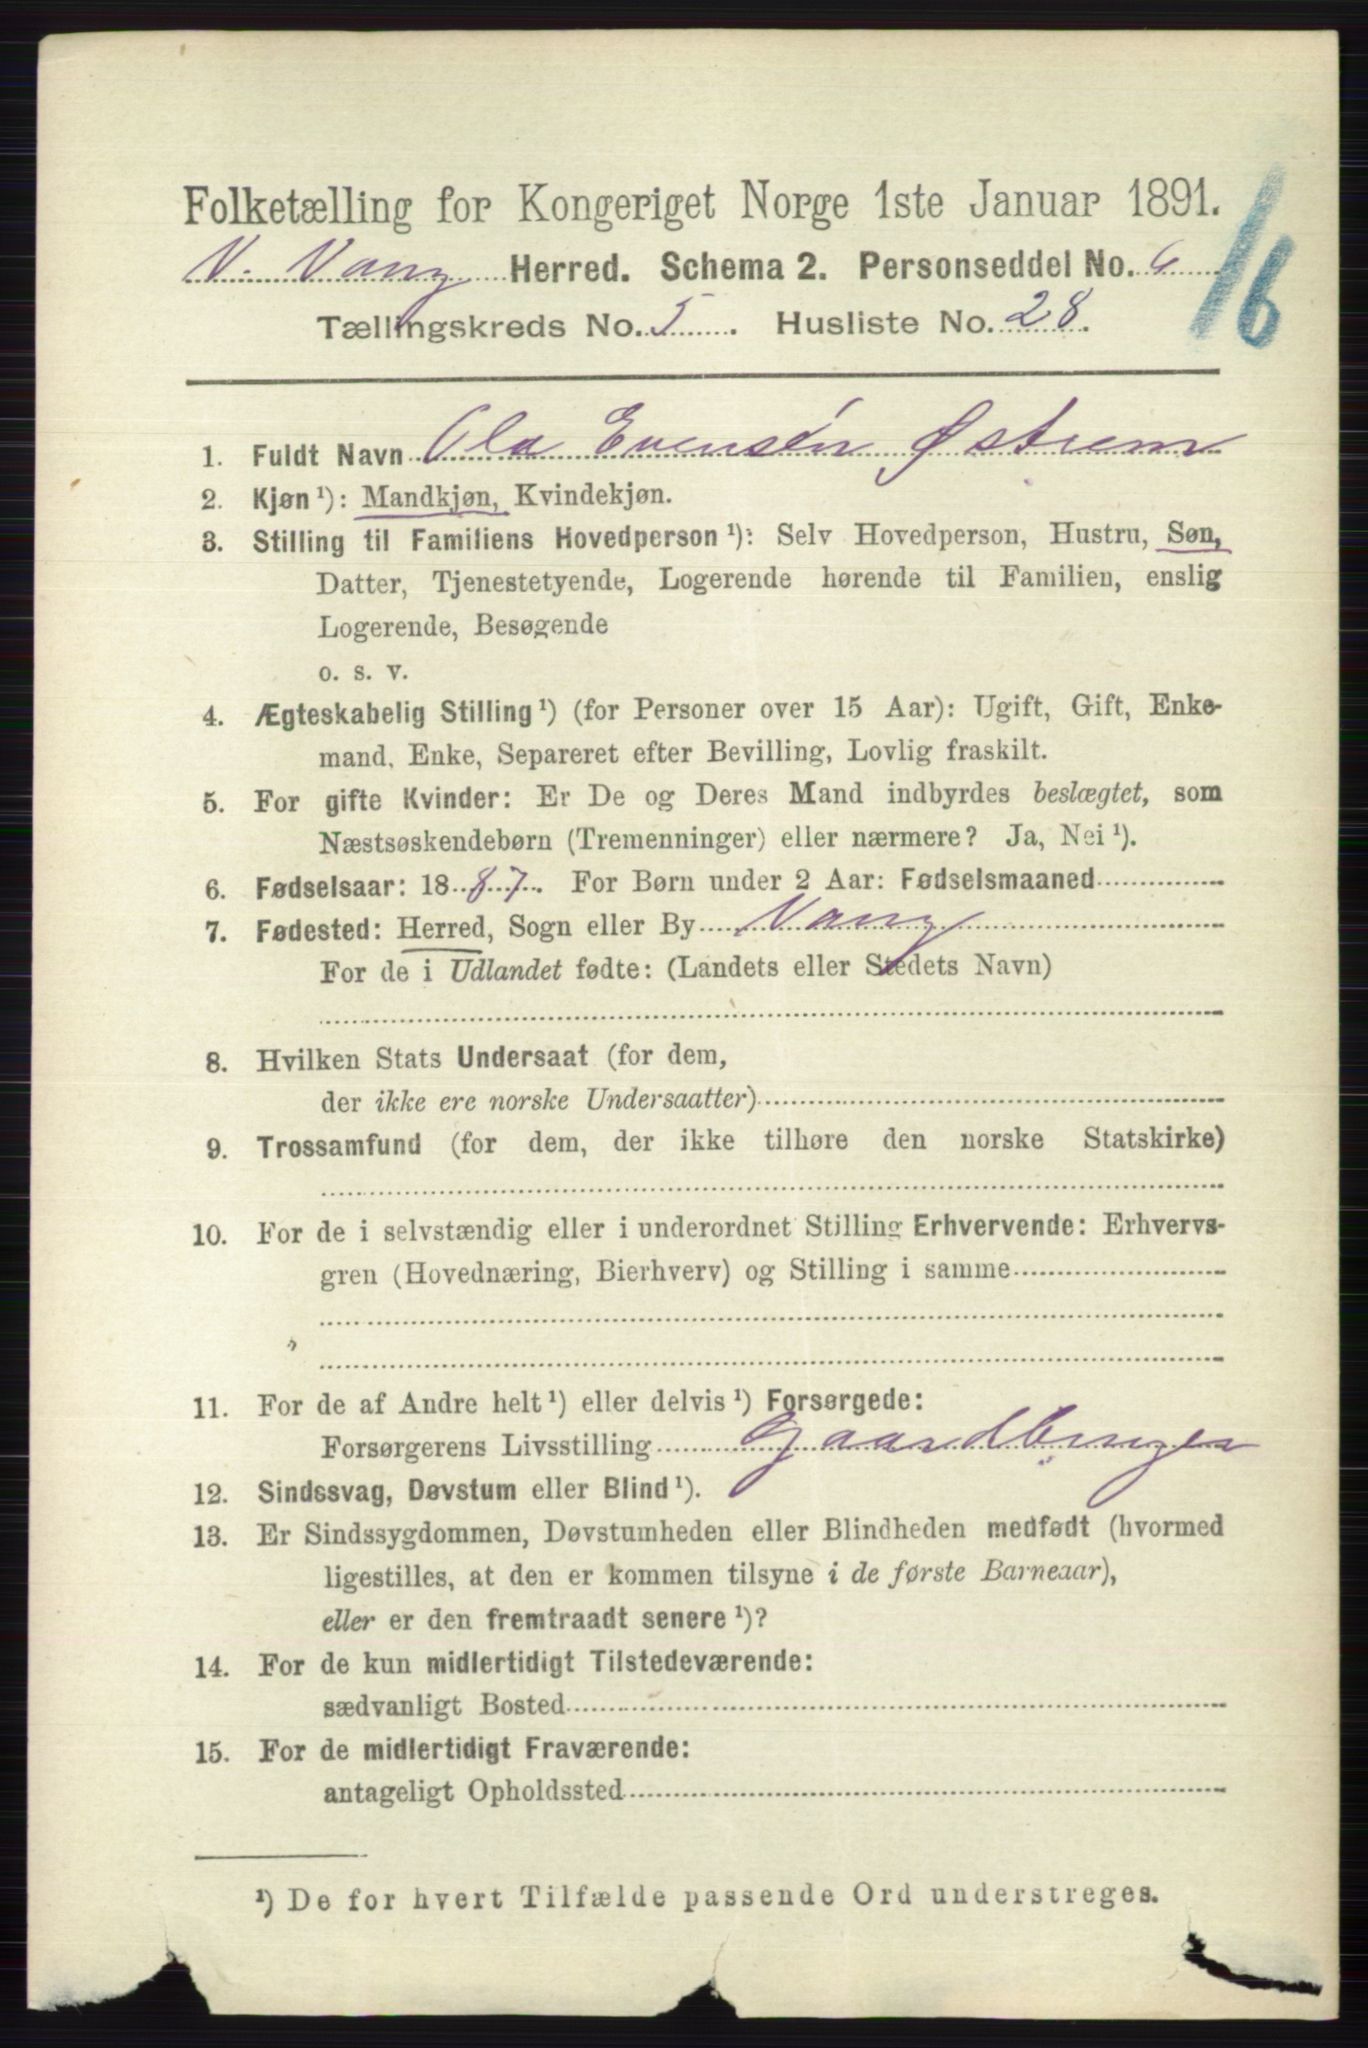 Folketælling for Kongeriget Norge 1ste Januar 1891.
16
V. Vang Herred. Schema 2. Personseddel No. 6
Tællingskreds No. 5. Husliste No. 28.
1. Fuldt Navn Ola Evensen Østrem
2. Kjøn ¹): Mandkjøn, Kvindekjøn.
3. Stilling til Familiens Hovedperson ¹): Selv Hovedperson, Hustru, Søn,
Datter, Tjenestetyende, Logerende hørende til Familien, enslig
Logerende, Besøgende
o. s. v.
4. Ægteskabelig Stilling ¹) (for Personer over 15 Aar): Ugift, Gift, Enke-
mand, Enke, Separeret efter Bevilling, Lovlig fraskilt.
5. For gifte Kvinder: Er De og Deres Mand indbyrdes beslægtet, som
Næstsøskendebørn (Tremenninger) eller nærmere? Ja, Nei ¹).
6. Fødselsaar: 1887. For Børn under 2 Aar: Fødselsmaaned
7. Fødested: Herred, Sogn eller By Vang
For de i Udlandet fødte: (Landets eller Stedets Navn)
8. Hvilken Stats Undersaat (for dem,
der ikke ere norske Undersaatter)
9. Trossamfund (for dem, der ikke tilhøre den norske Statskirke)
10. For de i selvstændig eller i underordnet Stilling Erhvervende: Erhvervs-
gren (Hovednæring, Bierhverv) og Stilling i samme
11. For de af Andre helt ¹) eller delvis ¹) Forsørgede:
Forsørgerens Livsstilling Gaardbruger
12. Sindssvag, Døvstum eller Blind ¹).
13. Er Sindssygdommen, Døvstumheden eller Blindheden medfødt (hvormed
ligestilles, at den er kommen tilsyne i de første Barneaar),
eller er den fremtraadt senere ¹)?
14. For de kun midlertidigt Tilstedeværende:
sædvanligt Bosted
15. For de midlertidigt Fraværende:
antageligt Opholdssted
¹) De for hvert Tilfælde passende Ord understreges.